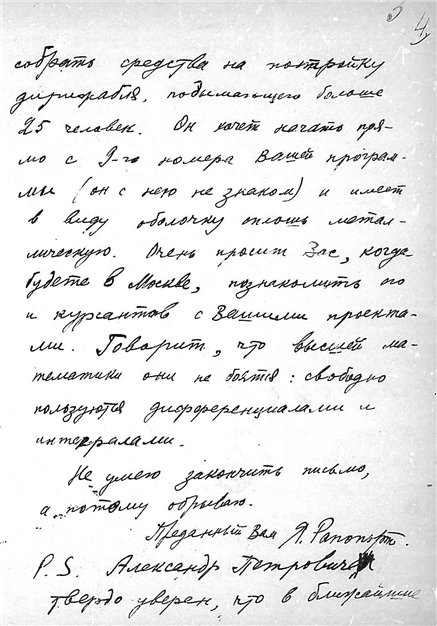 4
собрать средства на постройку
дирижабля, подымающего больше
25 человек. Он хочет начать пря-
мо с 9-го номера Вашей програм-
мы (он с нею не знаком) и имеет
в виду оболочку сплошь метал-
лическую. Очень просит Вас, когда
будете в Москве, познакомить его
и курсантов с Вашими проекта-
ми. Говорит, что высшей ма-
тематики они не боятся: свободно
пользуются дифференциалами и
интегралами.
Не умею закончить письмо,
а потому обрываю.
Преданный Вам Я. Рапопорт.
P.S. Александр Петрович
твердо уверен, что в ближайшие